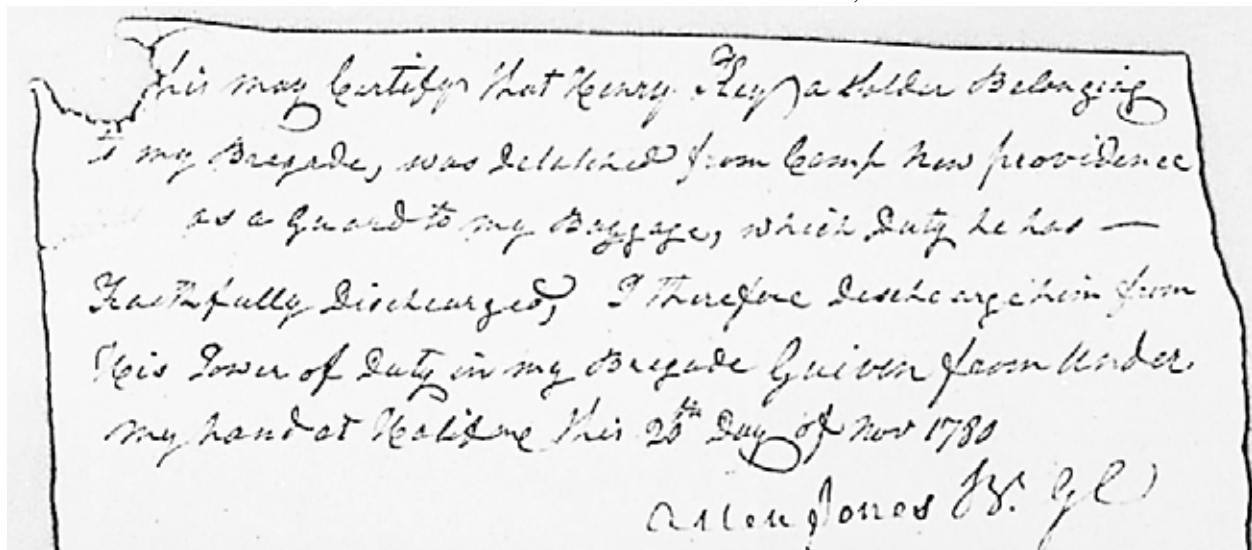 This may Certify that Henry Key a Solder Belonging
to my Bregade, was detatched from Camp New providence
as a Guard to my Baggage, which Duty he has —
Faithfully Discharged, I therefore descharge him from
His Tower of Duty in my Bregade Guiven from Under
my hand at Halifax this 20th Day of Nov 1780
Allen Jones B. Gl